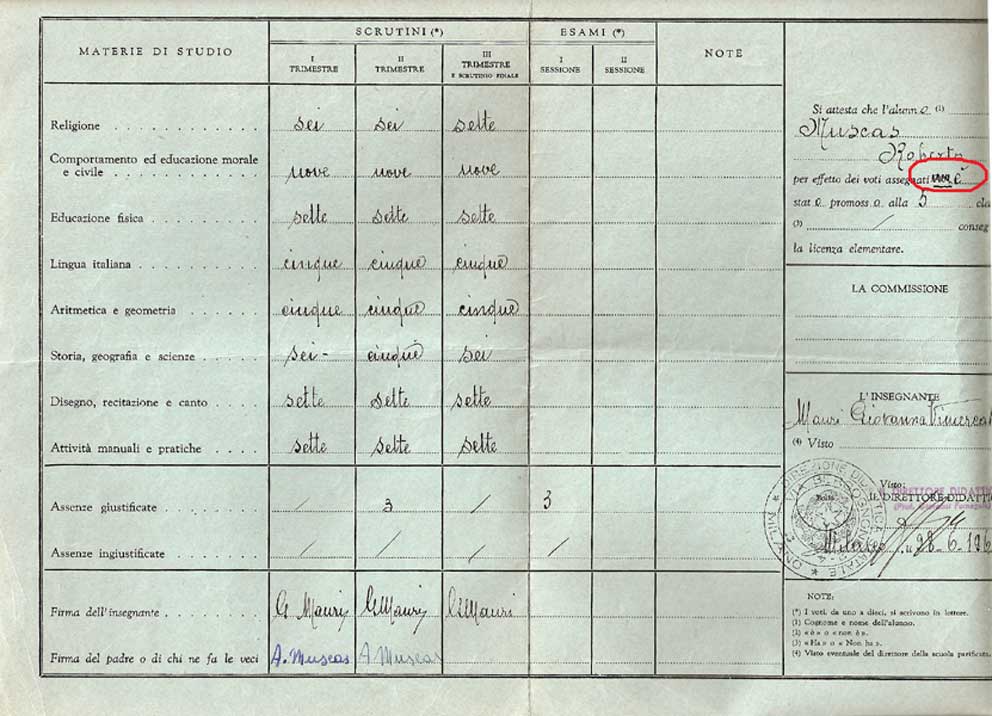 MATERIE DI STUDIO
SCRUTINI (*)
ESAMI (*)
NOTE
I TRIMESTRE
II TRIMESTRE
III TRIMESTRE E SCRUTINIO FINALE
I SESSIONE
II SESSIONE
Religione sei sei sette
Comportamento ed educazione morale
e civile nove nove nove
Educazione fisica sette sette sette
Lingua italiana cinque cinque cinque
Aritmetica e geometria cinque cinque cinque
Storia, geografia e scienze sei- cinque sei
Disegno, recitazione e canto sette sette sette
Attività manuali e pratiche sette sette sette
Assenze giustificate / 3 / 3
Assenze ingiustificate / / / /
Firma dell'insegnante G. Mauri G Mauri G Mauri
Firma del padre o di chi ne fa le veci A. Muscas A Muscas
Si attesta che l'alunno (1)
Muscas
Roberto
per effetto dei voti assegnati è
stato promosso alla 5 cla
(3) / conseg
la licenza elementare.
LA COMMISSIONE
L'INSEGNANTE
Mauri Giovanna Vimercat
(4) Visto
Visto:
IL DIRETTORE DIDATTI
DIRETTORE DIDATTI
DIREZIONE DIDATTICA
MILANO
Milano 28-6-196
NOTE:
(*) I voti, da uno a dieci, si scrivono in lettere.
(1) Cognome e nome dell'alunno.
(2) «è» o «non è».
(3) «Ha» o «Non ha».
(4) Visto eventuale del direttore della scuola parificata.